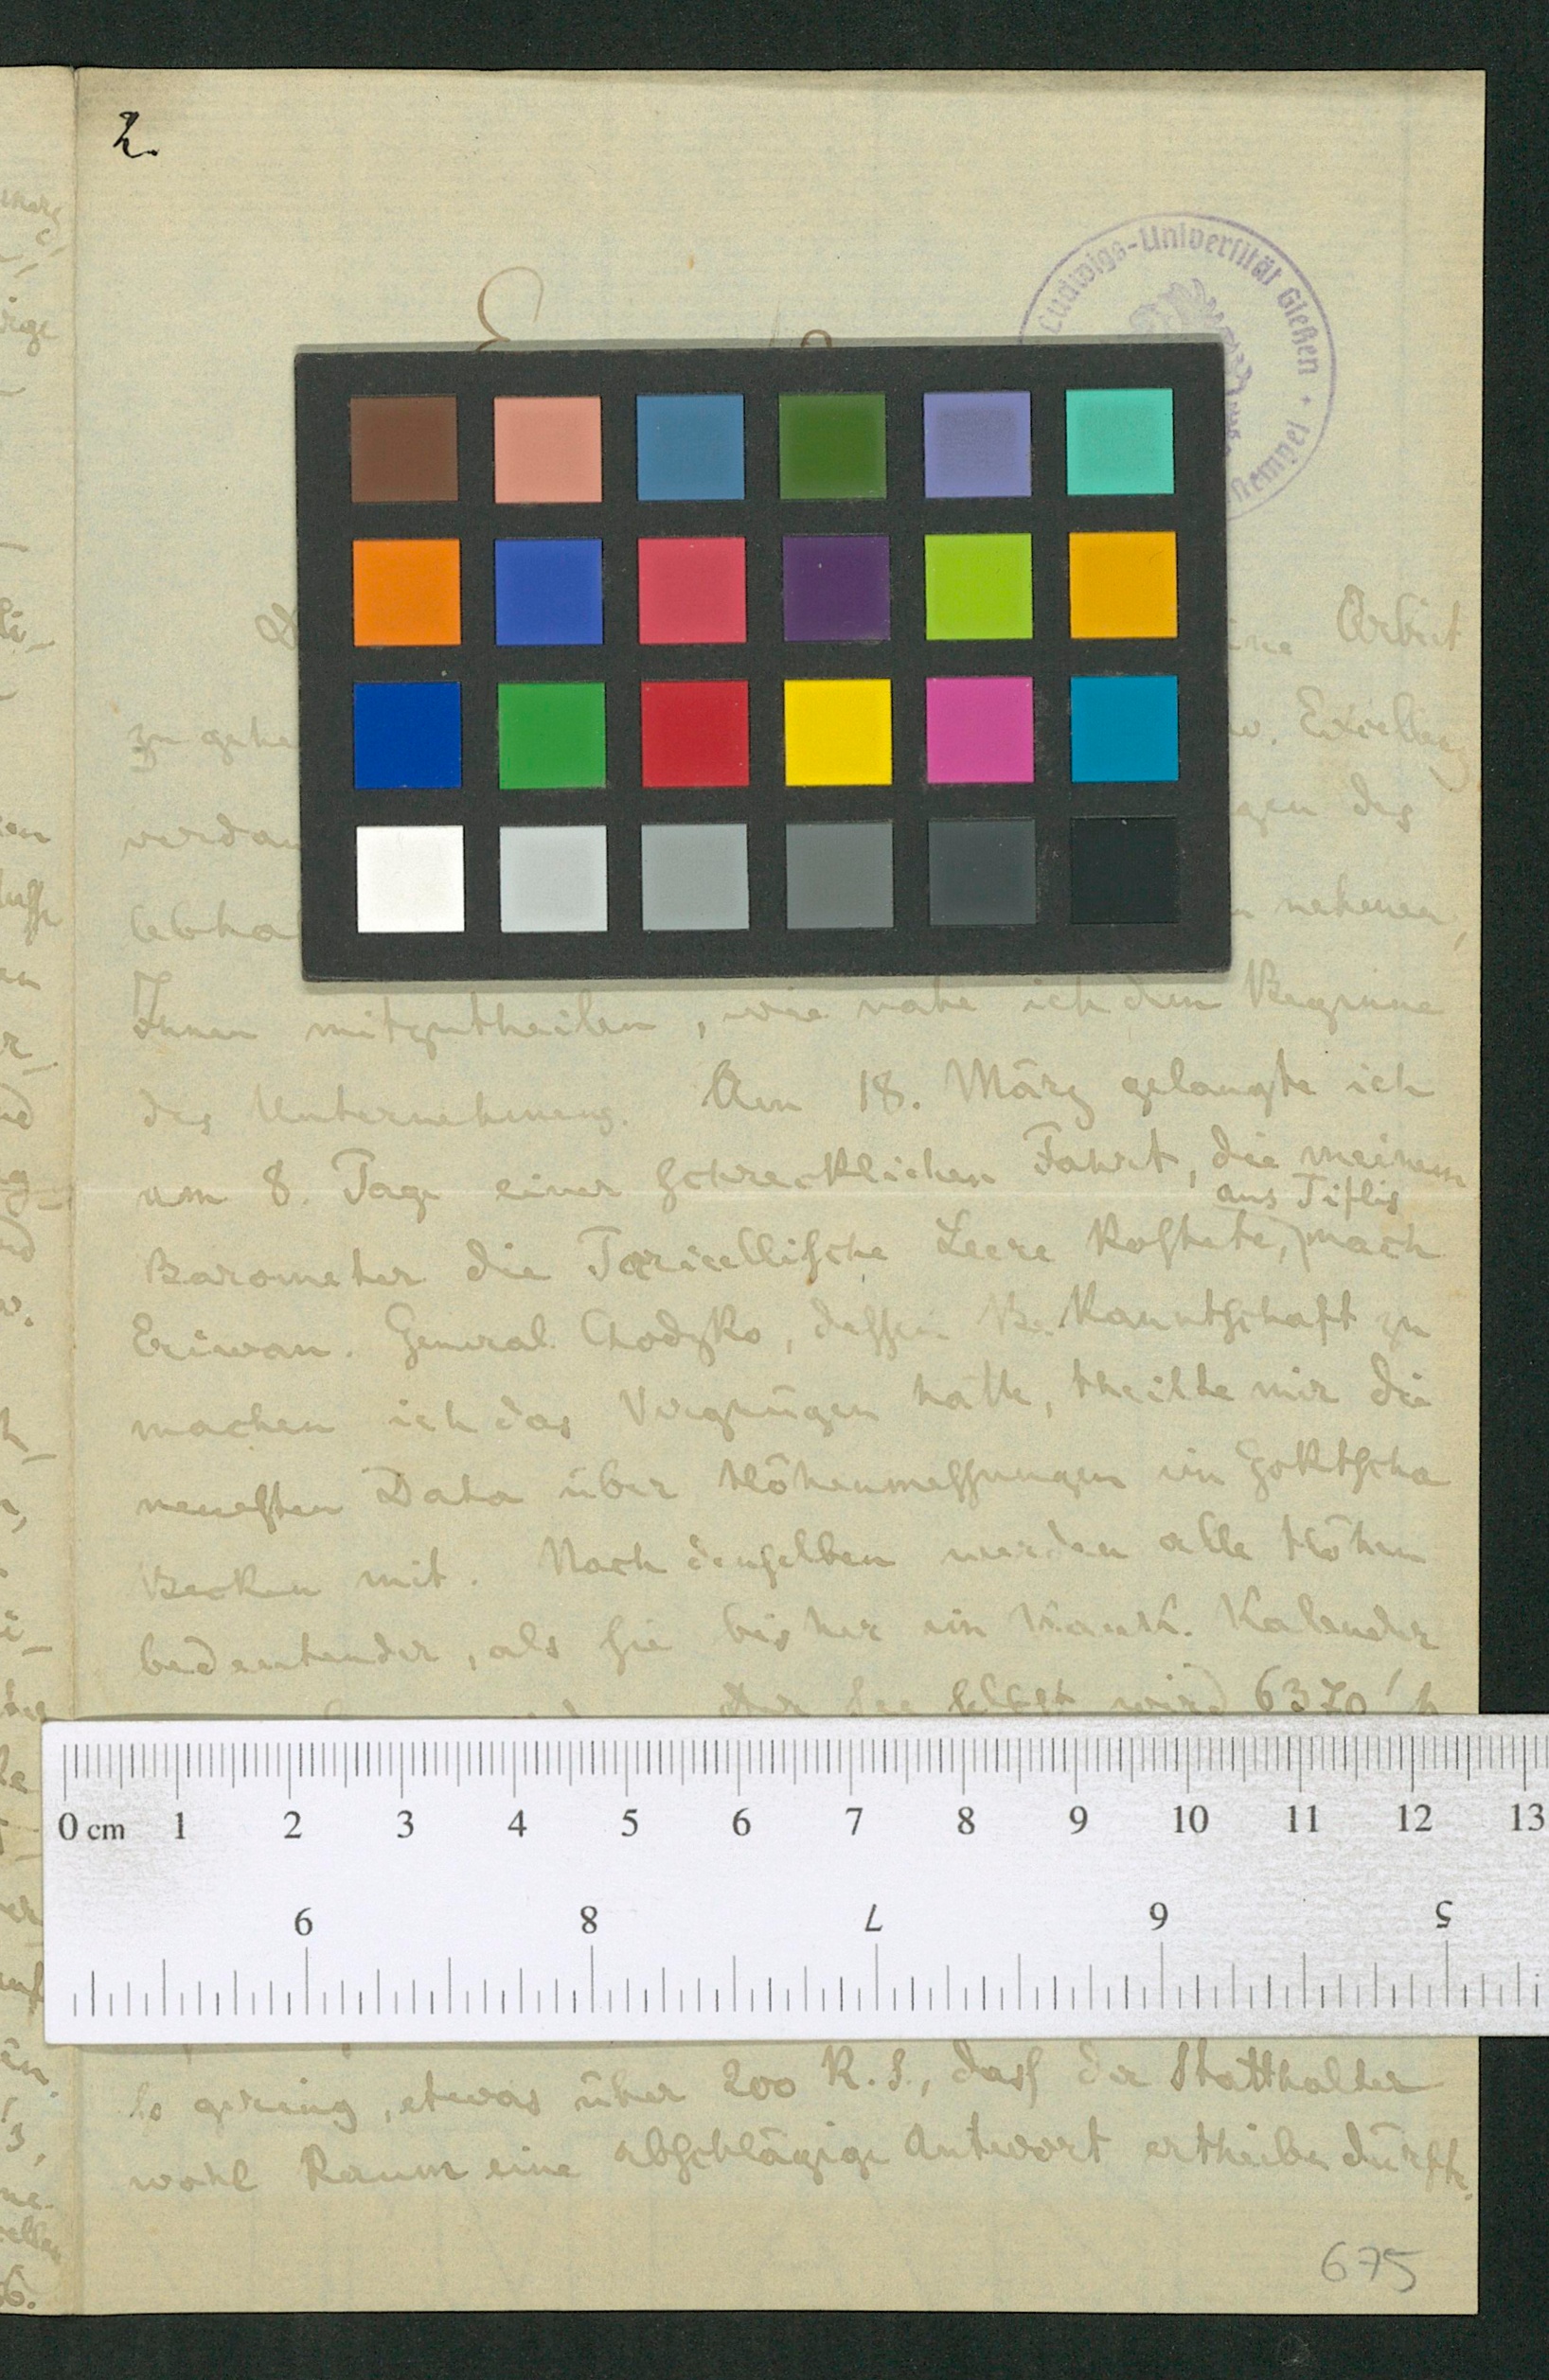 2.
Ludwigs-Universität Gießen
Arbeit
zu gehe
w. Excellenz
verdan
gen des
lebha
nehmen,
Ihnen mitzutheilen, wie nahe ich dem Beginne
des Unternehmens. Am 18. März gelangte ich
am 8. Tage einer schrecklichen Fahrt, die meinem
aus Tiflis
Barometer die Toricellische Leere kostete, nach
Eriwan. General Chodzko, dessen Bekanntschaft zu
machen ich das Vergnügen hatte, theilte mir die
neuesten Data über Höhenmessungen im Goktscha
Becken mit. Nach denselben werden alle Höhen
bedeutender, als sie bisher im Kauk. Kalender
Der See selbst wird 6370' h
0 cm 1 2 3 4 5 6 7 8 9 10 11 12 13
9 8 7 6 5
so gering, etwas über 200 R. S., dass der Statthalter
wohl kaum eine abschlägige Antwort ertheilen dürfte.
675